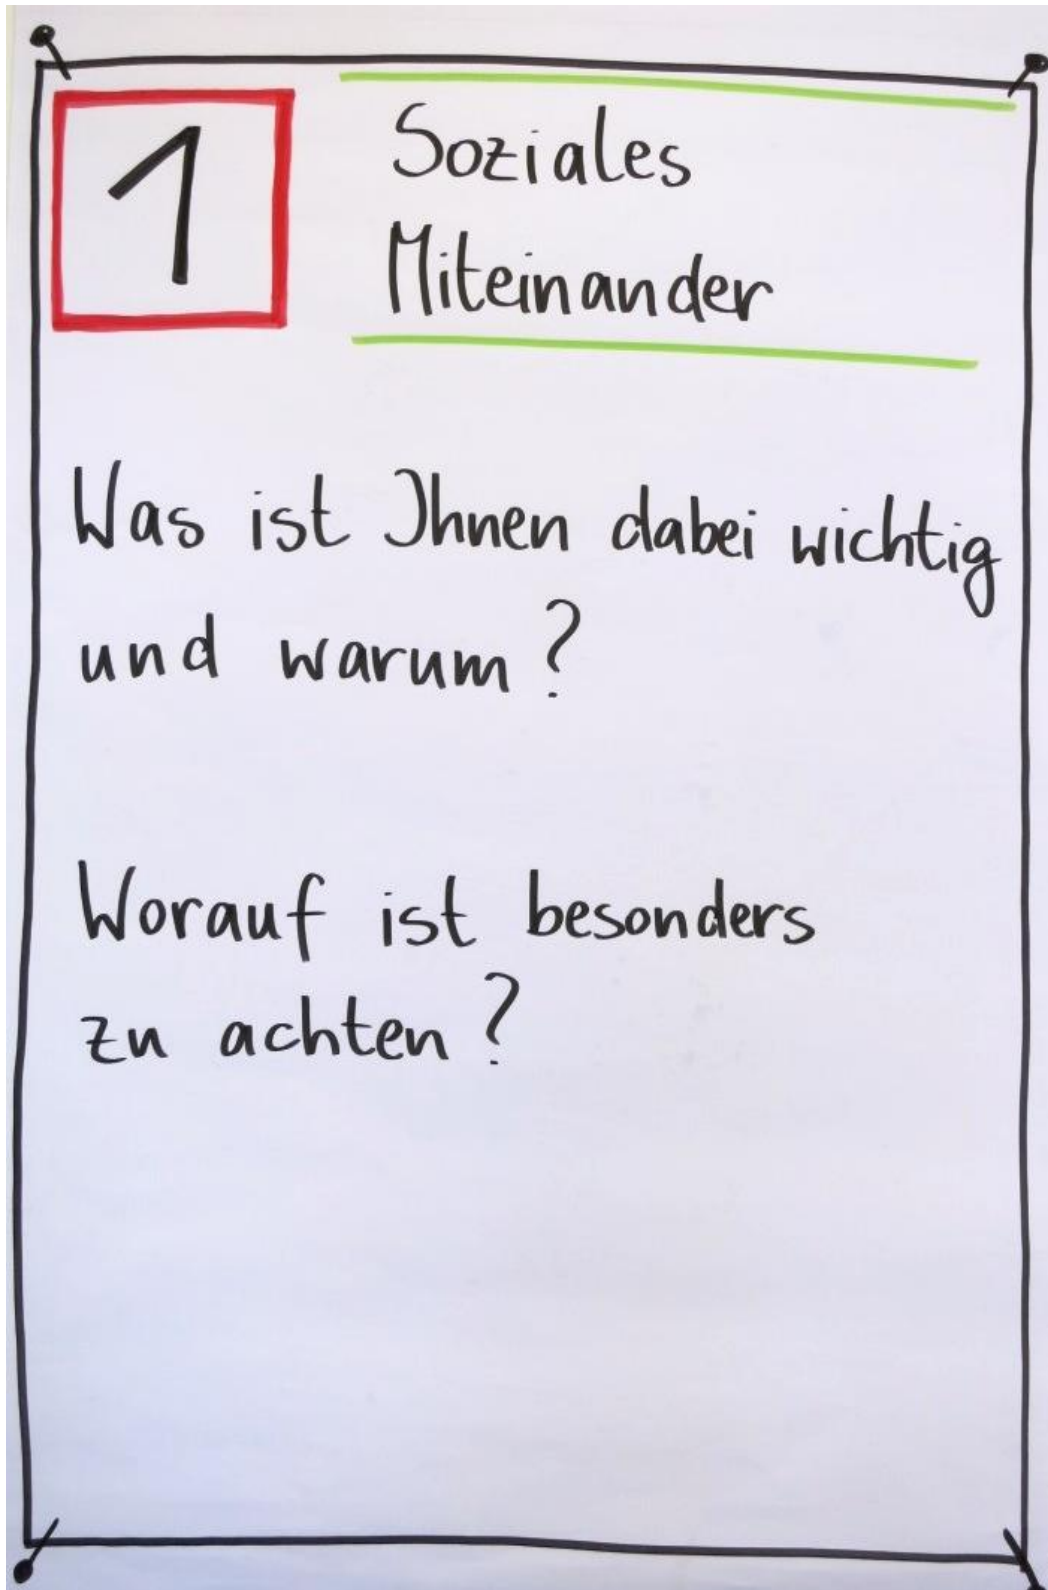 1
Soziales
Miteinander
Was ist Ihnen dabei wichtig
und warum?
Worauf ist besonders
zu achten?